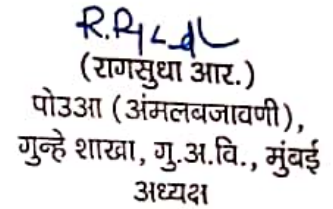 (रागसुधा आर.)
पोउआ (अंमलबजावणी),
गुन्हे शाखा, गु.अ.वि., मुंबई
अध्यक्ष